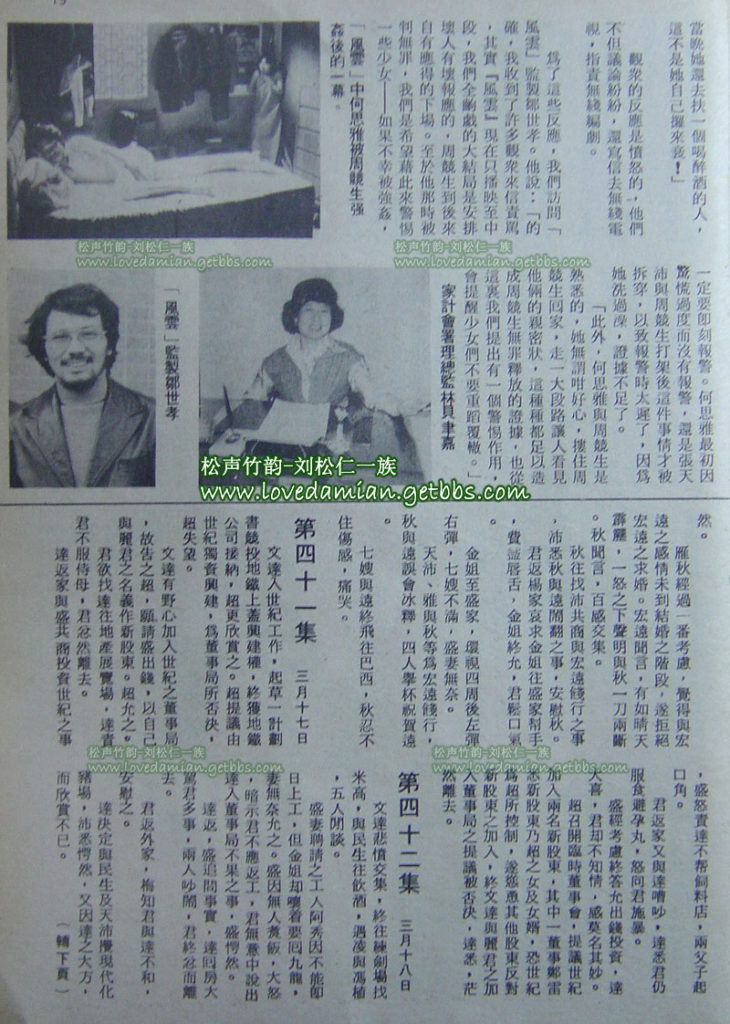 當晚她還去扶一個喝醉酒的人，
這不是她自己攞來衰！」
觀衆的反應是憤怒的，他們
不但議論紛紛，還寫信去無綫電
視，指責無綫編劇。
爲了這些反應，我們訪問「
風雲」監製鄒世孝。他說：「的
確，我收到了許多觀衆來信責駡
，其實『風雲』現在只播映至中
段，我們全齣戲的大結局是安排
壞人有壞報應的，周競生到後來
自有應得的下場。至於他那時被
判無罪，我們是希望藉此來警惕
一些少女——如果不幸被強姦，
「風雲」中何思雅被周競生强
姦後的一幕。
一定要即刻報警。何思雅最初因
驚慌過度而沒有報警，還是張天
沛與周競生打架後這件事情才被
拆穿，以致報警時太遲了，因爲
她洗過澡，證據不足了。
「此外，何思雅與周競生是
熟悉的，她無謂咁好心，摟住周
競生回家，走一大段路讓人看見
他倆的親密狀，這種種都足以造
成周競生無罪釋放的證據，也從
這裏我們提出有一個警惕作用，
會提醒少女們不要重蹈覆轍。」
家計會署理總監林貝聿嘉
「風雲」監製鄒世孝
然。
雁秋經過一番考慮，覺得與宏
遠之感情未到結婚之階段，遂拒絕
宏遠之求婚。宏遠聞言，有如晴天
霹靂，一怒之下聲明與秋一刀兩斷
。秋聞言，百感交集。
秋往找沛共商與宏遠餞行之事
，沛悉秋與遠鬧翻之事，安慰秋。
君返楊家哀求金姐往盛家幫手
，費盡唇舌，金姐終允，君鬆口氣
。
金姐至盛家，環視四周後左彈
右彈，七嫂不滿，盛妻無奈。
天沛、雅與秋等爲宏遠餞行，
秋與遠誤會冰釋，四人舉杯祝賀遠
。
七嫂與遠終飛往巴西，秋忍不
住傷感，痛哭。
第四十一集 三月十七日
文達入世紀工作，起草一計劃
書競投地鐵上蓋興建權，終獲地鐵
公司接納，超更欣賞之。超提議由
世紀獨資興建，爲董事局所否決，
超失望。
文達有野心加入世紀之董事局
，故告之超，願請盛出錢，以自己
與麗君之名義作新股東。超允之。
君欲找達往地產展覽場，達責
君不服侍母，君忿然離去。
達返家與盛共商投資世紀之事
，盛怒責達不帮飼料店，兩父子起
口角。
君返家又與達嘈吵，達悉君仍
服食避孕丸，怒向君施暴。
盛經考慮終答允出錢投資，達
大喜，君却不知情，感莫名其妙。
超召開臨時董事會，提議世紀
加入兩名新股東，其中一董事鄭雷
悉新股東乃超之女及女婿，恐世紀
爲超所控制，遂慫恿其他股東反對
新股東之加入，終文達與麗君之加
入董事局之提議被否決，達悉，茫
然離去。
第四十二集 三月十八日
文達悲憤交集，終往練劍場找
米高，與民生往飲酒，遇凌與馮楨
，五人閒談。
盛妻聘請之工人阿秀因不能即
日上工，但金姐却嚷着要囘九龍，
妻無奈允之。盛因無人煑飯，大怒
，暗示君不應返工，君無意中說出
達入董事局不果之事，盛愕然。
達返，盛追問事實，達囘房大
駡君多事，兩人吵鬧，君終忿而離
去。
君返外家，梅知君與達不和，
安慰之。
達決定與民生及天沛攪現代化
豬場，沛悉愕然，又因達之大方，
而欣賞不已。
（轉下頁）
松声竹韵-刘松仁一族
www.lovedamian.getbbs.com
松声竹韵-刘松仁一族
www.lovedamian.getbbs.com
松声竹韵-刘松仁一族
www.lovedamian.getbbs.com
松声竹韵-刘松仁一族
www.lovedamian.getbbs.com
松声竹韵-刘松仁一族
www.lovedamian.getbbs.com